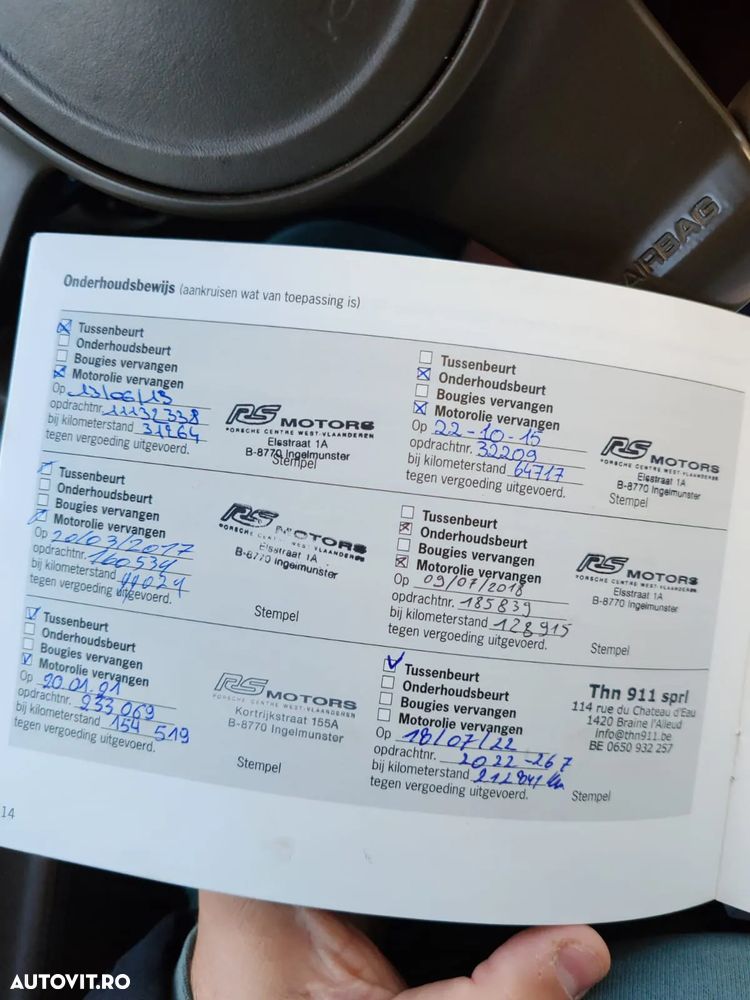 AIRBAG
Onderhoudsbewijs (aankruisen wat van toepassing is)
Tussenbeurt
Onderhoudsbeurt
Bougies vervangen
Motorolie vervangen
Op 13/06/13
opdrachtnr. 11132338
bij kilometerstand 31264
tegen vergoeding uitgevoerd.
RS MOTORS
PORSCHE CENTRE WEST-VLAANDEREN
Elsstraat 1A
B-8770 Ingelmunster
Stempel
Tussenbeurt
Onderhoudsbeurt
Bougies vervangen
Motorolie vervangen
Op 22-10-15
opdrachtnr. 32209
bij kilometerstand 64717
tegen vergoeding uitgevoerd.
RS MOTORS
PORSCHE CENTRE WEST-VLAANDEREN
Elsstraat 1A
B-8770 Ingelmunster
Stempel
Tussenbeurt
Onderhoudsbeurt
Bougies vervangen
Motorolie vervangen
Op 20/03/2017
opdrachtnr. 160534
bij kilometerstand
tegen vergoeding uitgevoerd.
RS MOTORS
PORSCHE CENTRE WEST-VLAANDEREN
Elsstraat 1A
B-8770 Ingelmunster
Stempel
Tussenbeurt
Onderhoudsbeurt
Bougies vervangen
Motorolie vervangen
Op 09/07/2018
opdrachtnr. 185839
bij kilometerstand 128915
tegen vergoeding uitgevoerd.
RS MOTORS
PORSCHE CENTRE WEST-VLAANDEREN
Elsstraat 1A
B-8770 Ingelmunster
Stempel
Tussenbeurt
Onderhoudsbeurt
Bougies vervangen
Motorolie vervangen
Op 20.01.21
opdrachtnr. 233069
bij kilometerstand 154 519
tegen vergoeding uitgevoerd.
RS MOTORS
PORSCHE CENTRE WEST-VLAANDEREN
Kortrijkstraat 155A
B-8770 Ingelmunster
Stempel
Tussenbeurt
Onderhoudsbeurt
Bougies vervangen
Motorolie vervangen
Op 18/07/22
opdrachtnr. 2022-267
bij kilometerstand
tegen vergoeding uitgevoerd.
Thn 911 sprl
114 rue du Chateau d'Eau
1420 Braine l'Alleud
Info@thn911.be
BE 0650 932 257
Stempel
14
AUTOVIT.RO